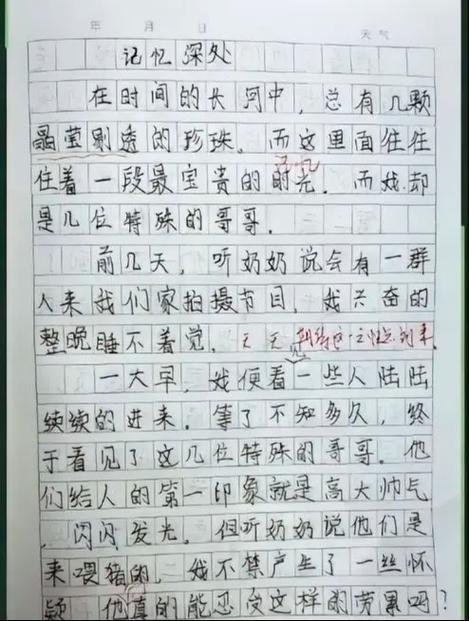 年 月 日 天气
记忆深处
在时间的长河中，总有几颗
晶莹剔透的珍珠。而这里面往往
住着一段最宝贵的时光。而我却
是几位特殊的哥哥.
前几天，听奶奶说会有一群
人来我们家拍摄节目，我兴奋的
整晚睡不着觉。天天
见
一大早，我便看一些人陆陆
续续的进来。等了不知多久，终
于看见了这几位特殊的哥哥。他
们给人的第一印象就是高大帅气
，闪闪发光。但听奶奶说他们是
来喂猪的，我不禁产生了一丝怀
疑 他真的能忍受这样的劳累吗？